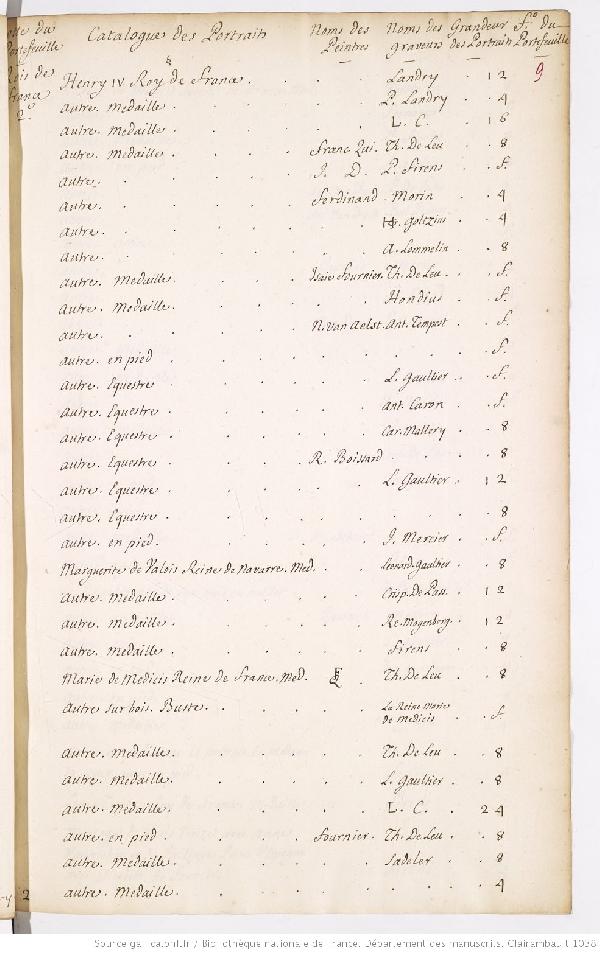 Catalogue des Portraits Noms des Peintres Noms des graveurs Grandeur des Portraits f.o du Portefeuille
Portefeuille
Rois de France
2o
9
Henry IV Roy de France . . . Landry . 12
autre Medaille . . . P. Landry . 4
autre Medaille . . . L. C. 16
autre Medaille . . . Franc. Qui. Th. De Leu . 8
autre . . . J. D. P. Firens . f.
autre . . . Ferdinand. Morin . 4
autre . . . H. Goltzius . 4
autre . . . A. Lommelin . 8
autre. Medaille . . . Isaie Fournier. Th. De Leu . f.
autre. Medaille . . . Hondius . f.
autre . . . N. Van Aelst. Ant. Tempest . f.
autre. en pied . . . f.
autre. Equestre . . . L. Gaultier . f.
autre. Equestre . . . Ant. Caron . f.
autre. Equestre . . . Car. Mallery . 8
autre. Equestre . . . R. Boissard . . 8
autre. Equestre . . . L. Gaultier . 12
autre. Equestre . . . 8
autre. en pied . . . J. Mercier . f.
Marguerite de Valois Reine de Navarre. Med. . . Leonard. Gaultier . 8
autre. Medaille . . . Crisp. De Pass . 12
autre. Medaille . . . 12
autre. Medaille . . . Firens . 8
Marie de Medicis Reine de France. Med. . Th. De Leu . 8
Autre sur bois. Buste . . . La Reine Marie de Medicis . f.
autre. Medaille . . . Th. De Leu . 8
autre. Medaille . . . L. Gaultier . 8
autre. Medaille . . . L. C. . 24
autre. en pied . . . Fournier. Th. De Leu . 8
autre. Medaille . . . Sadeler . 8
autre. Medaille . . . 4
2
Source gallica.bnf.fr / Bibliothèque nationale de France. Département des manuscrits. Clairambault 1038